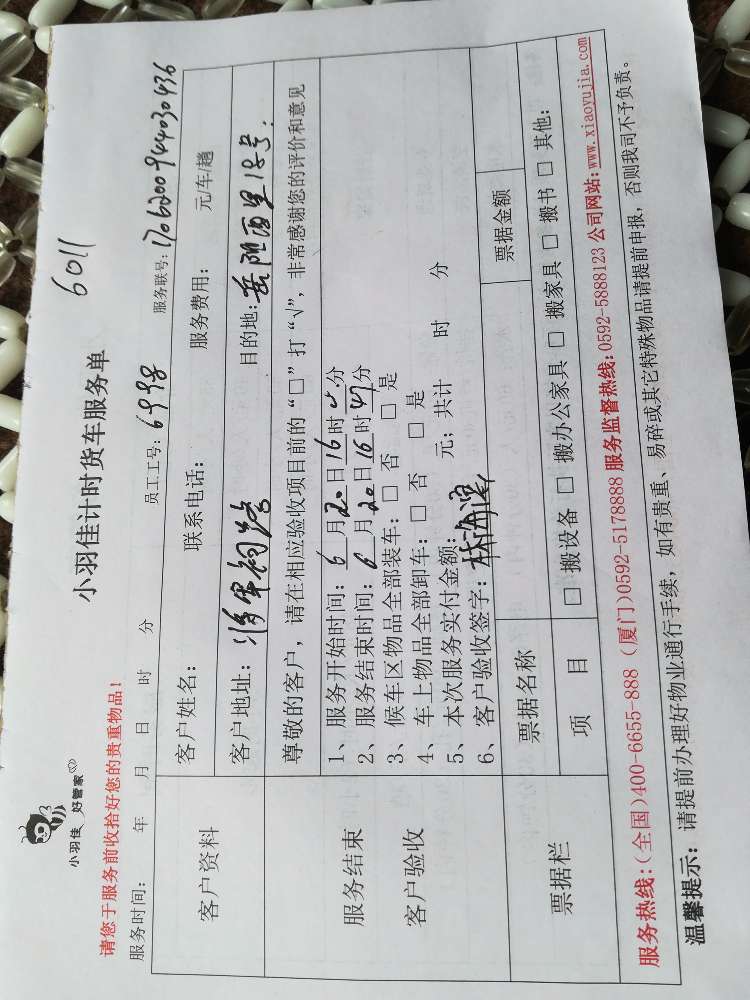 小羽佳 好管家
小羽佳计时货车服务单
6011
请您于服务前收拾好您的贵重物品！
服务时间： 年 月 日 时 分 员工工号：6998 服务联号：1706200944030436
客户资料
客户姓名： 联系电话： 服务费用： 元/车/趟
客户地址： 目的地：岳阳西里18号
尊敬的客户，请在相应验收项目前的“□”打“√”，非常感谢您的评价和意见
服务结束
客户验收
1、服务开始时间：6月20日16时 分
2、服务结束时间：6月20日16时47分
3、候车区物品全部装车：□ 否 □ 是
4、车上物品全部卸车：□ 否 □ 是
5、本次服务实付金额： 元；共计 时 分
6、客户验收签字：林海滨
票据栏
票据名称 票据金额
项 目 □ 搬设备 □ 搬办公家具 □ 搬家具 □ 搬书 □ 其他：
服务热线：（全国）400-6655-888（厦门）0592-5178888 服务监督热线：0592-5888123 公司网站：www.xiaoyujia.com
温馨提示：请提前办理好物业通行手续，如有贵重、易碎或其它特殊物品请提前申报，否则我司不予负责。